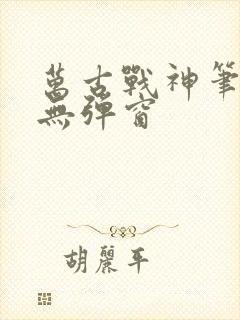 萬古戰神筆
無彈窗
胡麗平